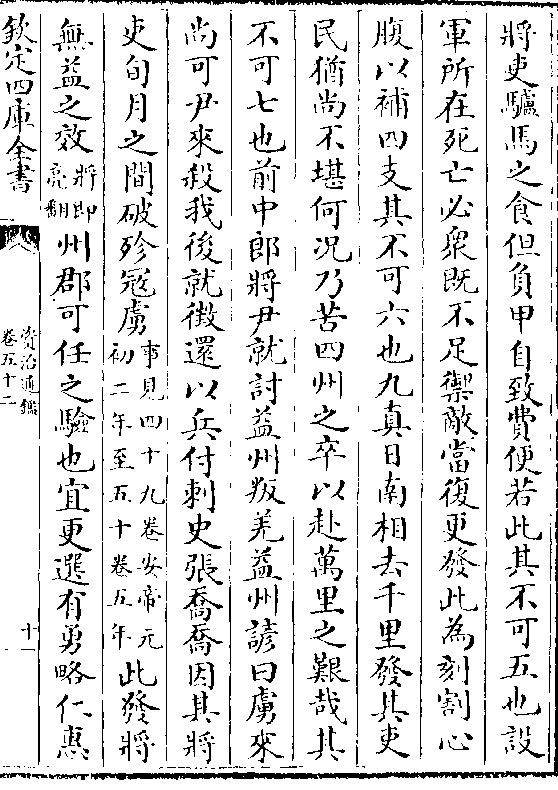 將吏驢馬之食但負甲自致費便若此其不可五也設
軍所在死亡必衆既不足禦敵當復更發此為刻割心
腹以補四支其不可六也九真日南相去千里發其吏
民猶尚不堪何况乃苦四州之卒以赴萬里之艱哉其
不可七也前中郎將尹就討益州叛羌益州諺曰虜來
尚可尹來殺我後就徴還以兵付刺史張喬喬因其將
吏旬月之間破殄冦虜事見四十九卷安帝元初二年至五十卷五年此發將
無益之效將即亮翻州郡可任之驗也宜更選有勇略仁惠
欽定四庫全書
資治通鑑
卷五十二
十一